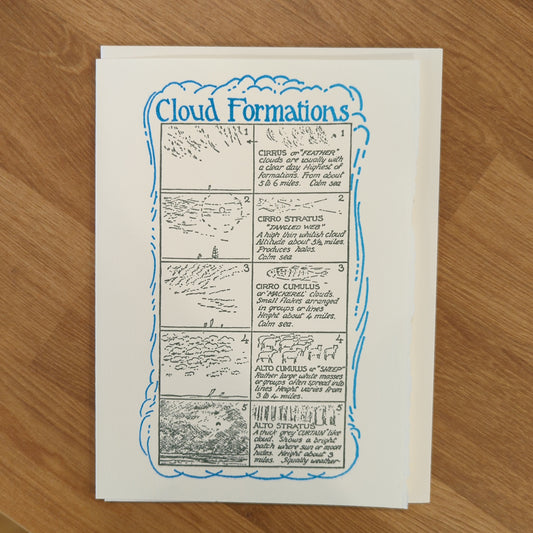 Cloud Formations
1
1
CIRRUS or "FEATHER"
clouds are usually with
a clear day. Highest of
formations. From about
5 to 6 miles. Calm sea
2
2
CIRRO STRATUS
"TANGLED WEB"
A high thin whitish cloud
Altitude about 5½ miles.
Produces halos.
Calm sea
3
3
CIRRO CUMULUS
or "MACKEREL" clouds.
Small flakes arranged
in groups or lines
Height about 4 miles.
Calm sea.
4
4
ALTO CUMULUS or "SHEEP"
Rather large white masses
or groups often spread into
lines Height varies from
3 to 4 miles.
5
5
ALTO STRATUS
A thick grey "CURTAIN" like
cloud. Shows a bright
patch where sun or moon
hides. Height about 3
miles. Squally weather